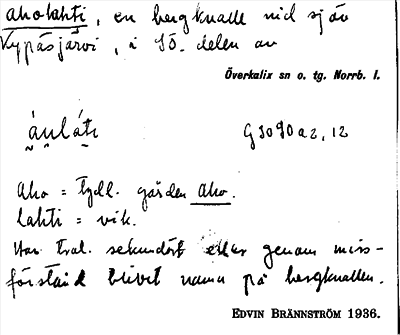 aholahti, en bergknalle vid sjön
Kypäsjärvi, i SÖ. delen av
Överkalix sn o. tg. Norrb. l.
áu̯láti G3090a2, 12
Aho = tydl. gården Aho.
lahti = vik.
Har trol. sekundärt eller genom miss-
förstånd blivit namn på bergknallen.
EDVIN BRÄNNSTRÖM 1936.